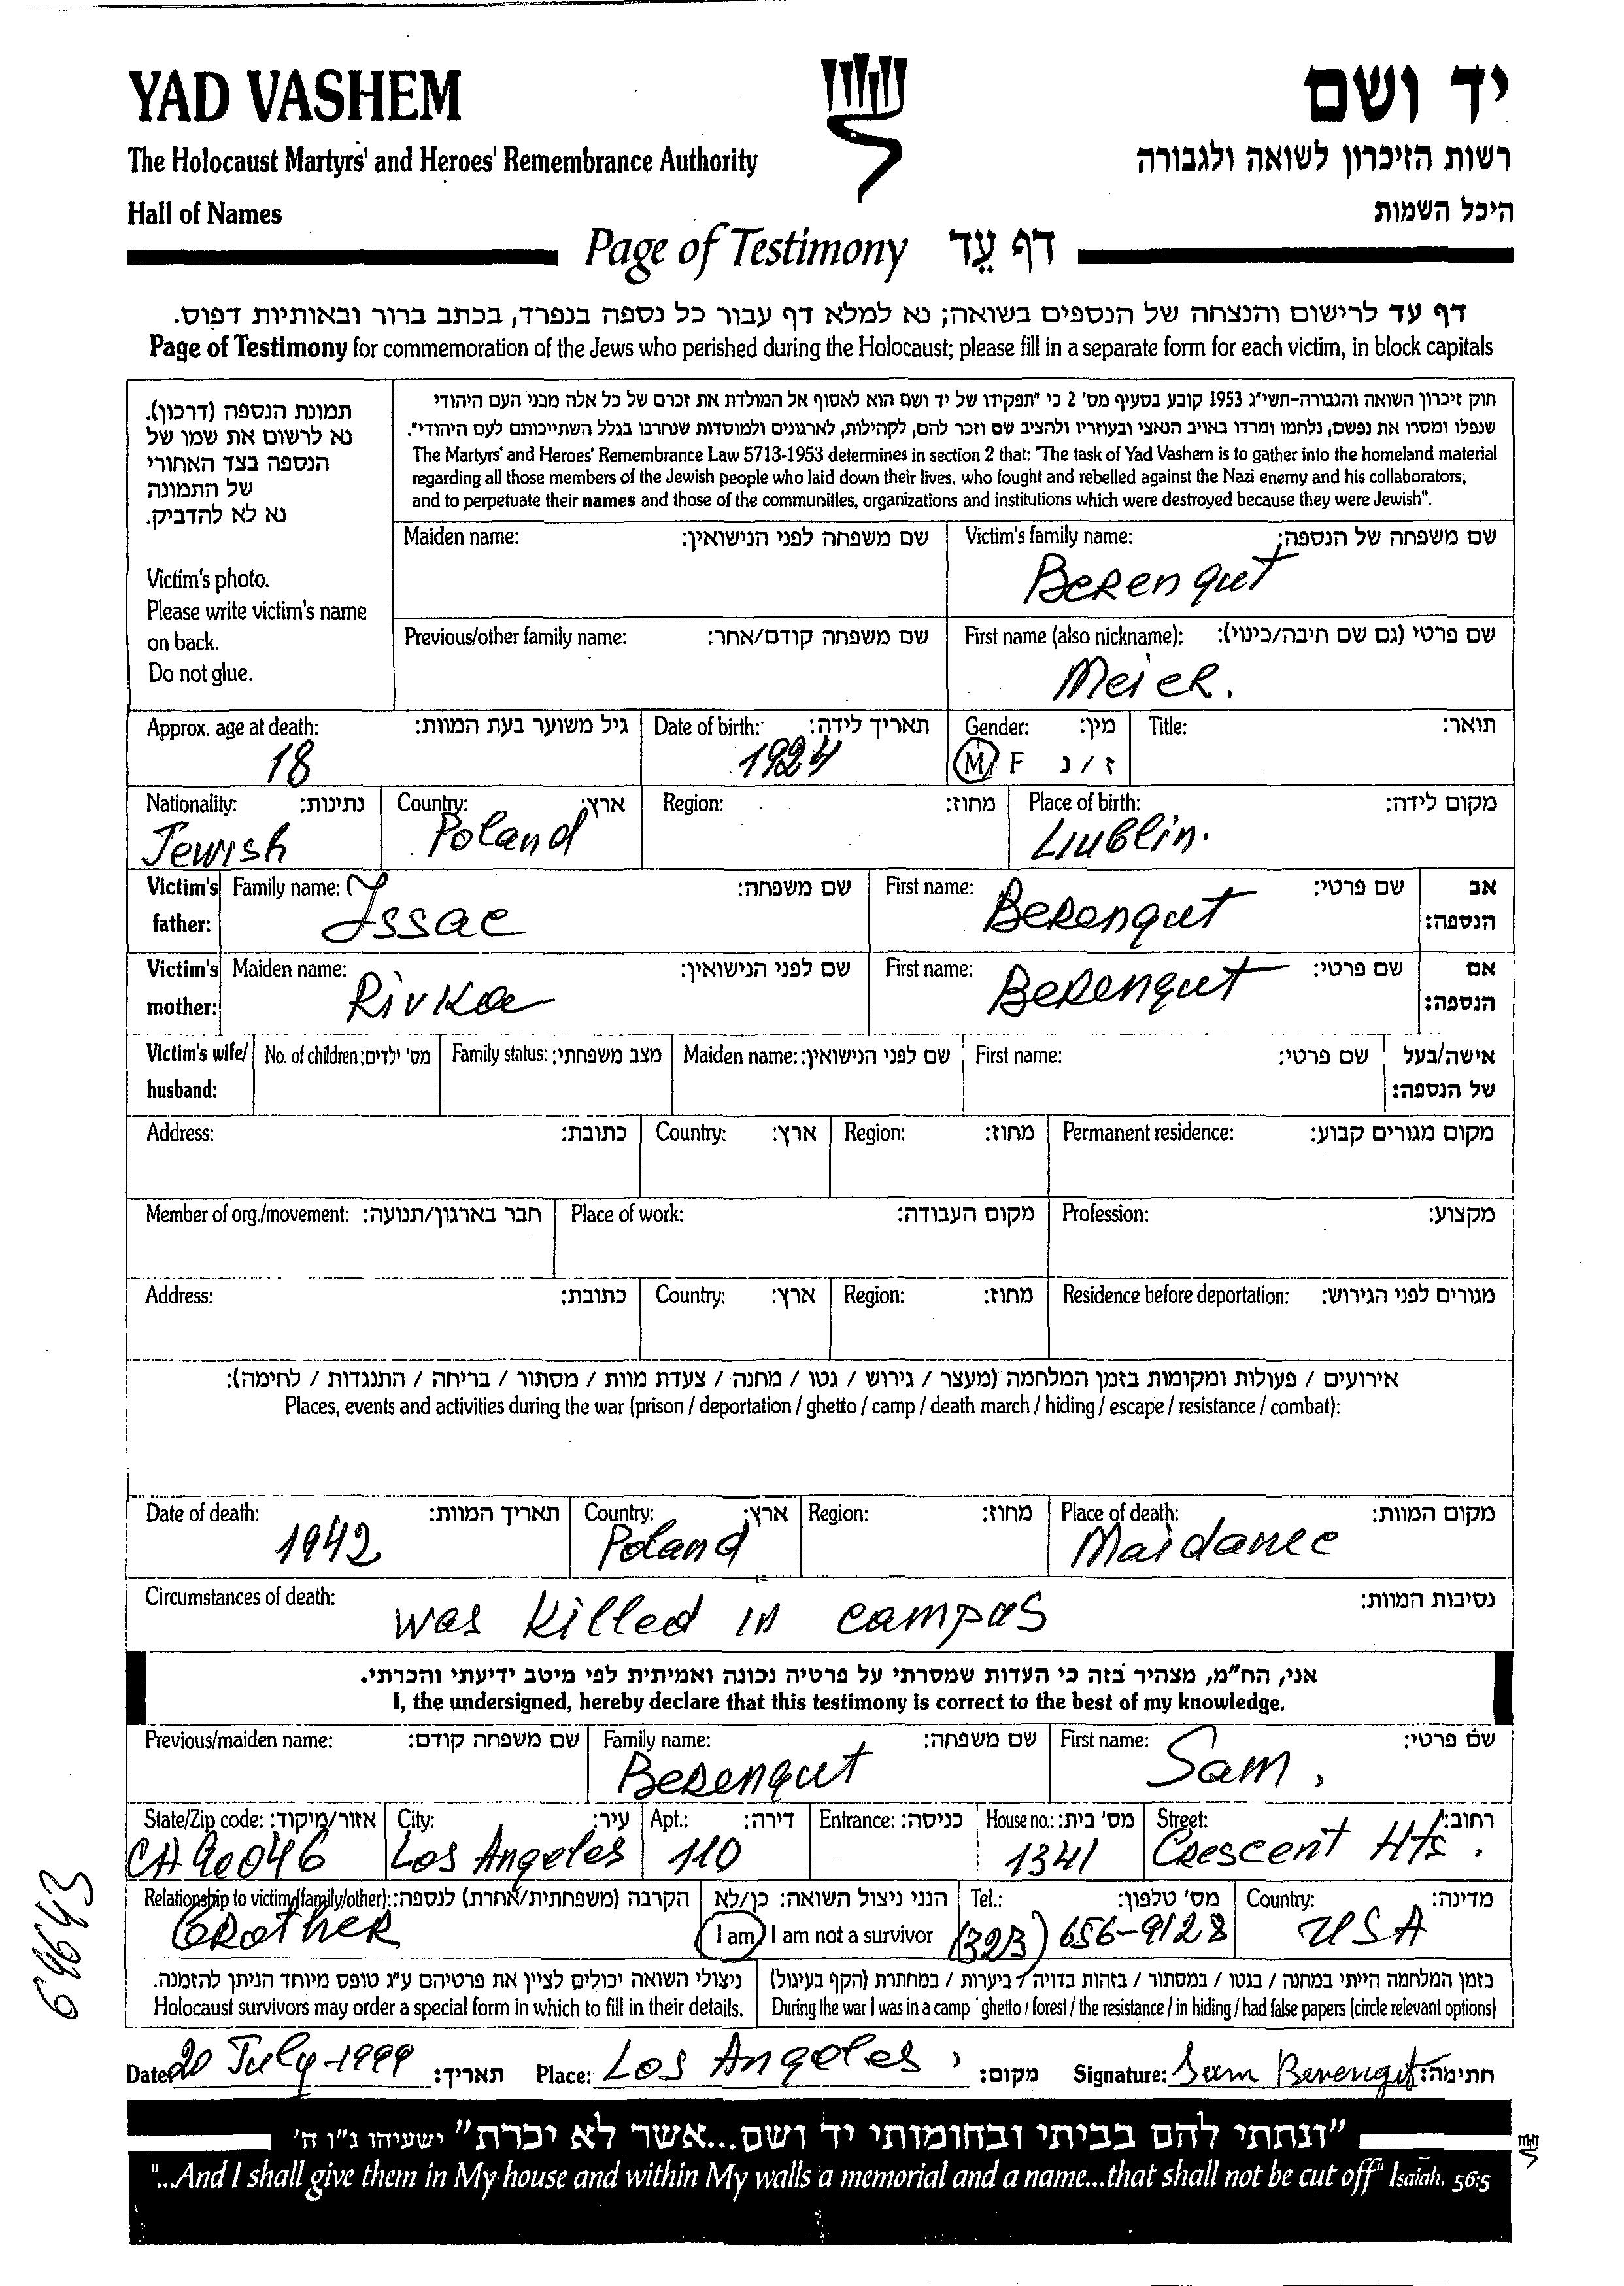 YAD VASHEM
יד ושם
The Holocaust Martyrs' and Heroes' Remembrance Authority
רשות הזיכרון לשואה ולגבורה
Hall of Names
היכל השמות
Page of Testimony דף עֵד
דף עד לרישום והנצחה של הנספים בשואה; נא למלא דף עבור כל נספה בנפרד, בכתב ברור ובאותיות דפוס.
Page of Testimony for commemoration of the Jews who perished during the Holocaust; please fill in a separate form for each victim, in block capitals
תמונת הנספה (דרכון).
נא לרשום את שמו של
הנספה בצד האחורי
של התמונה
נא לא להדביק.
Victim's photo.
Please write victim's name
on back.
Do not glue.
חוק זיכרון השואה והגבורה-תשי"ג 1953 קובע בסעיף מס' 2 כי "תפקידו של יד ושם הוא לאסוף אל המולדת את זכרם של כל אלה מבני העם היהודי
שנפלו ומסרו את נפשם, נלחמו ומרדו באויב הנאצי ובעוזריו ולהציב שם וזכר להם, לקהילות, לארגונים ולמוסדות שנחרבו בגלל השתייכותם לעם היהודי".
The Martyrs' and Heroes' Remembrance Law 5713-1953 determines in section 2 that: "The task of Yad Vashem is to gather into the homeland material
regarding all those members of the Jewish people who laid down their lives, who fought and rebelled against the Nazi enemy and his collaborators,
and to perpetuate their names and those of the communities, organizations and institutions which were destroyed because they were Jewish".
Maiden name: שם משפחה לפני הנישואין:
Victim's family name: שם משפחה של הנספה:
Berengut
Previous/other family name: שם משפחה קודם/אחר:
First name (also nickname): שם פרטי (גם שם חיבה/כינוי):
Meier.
Approx. age at death: גיל משוער בעת המוות:
18
Date of birth: תאריך לידה:
1924
Gender: מין:
M F ז / נ
Title: תואר:
Nationality: נתינות:
Jewish
Country: ארץ:
Poland
Region: מחוז:
Place of birth: מקום לידה:
Liublin.
Victim's father:
Family name: שם משפחה:
Issac
First name: שם פרטי:
Berengut
אב הנספה:
Victim's mother:
Maiden name: שם לפני הנישואין:
Rivka
First name: שם פרטי:
Berengut
אם הנספה:
Victim's wife/ husband:
No. of children: מס' ילדים:
Family status: מצב משפחתי:
Maiden name: שם לפני הנישואין:
First name: שם פרטי:
אישה/בעל של הנספה:
Address: כתובת:
Country: ארץ:
Region: מחוז:
Permanent residence: מקום מגורים קבוע:
Member of org./movement: חבר בארגון/תנועה:
Place of work: מקום העבודה:
Profession: מקצוע:
Address: כתובת:
Country: ארץ:
Region: מחוז:
Residence before deportation: מגורים לפני הגירוש:
אירועים / פעולות ומקומות בזמן המלחמה (מעצר / גירוש / גטו / מחנה / צעדת מוות / מסתור / בריחה / התנגדות / לחימה):
Places, events and activities during the war (prison / deportation / ghetto / camp / death march / hiding / escape / resistance / combat):
Date of death: תאריך המוות:
1942
Country: ארץ:
Poland
Region: מחוז:
Place of death: מקום המוות:
Maidanec
Circumstances of death: נסיבות המוות:
was killed in campus
אני, הח"מ, מצהיר בזה כי העדות שמסרתי על פרטיה נכונה ואמיתית לפי מיטב ידיעתי והכרתי.
I, the undersigned, hereby declare that this testimony is correct to the best of my knowledge.
Previous/maiden name: שם משפחה קודם:
Family name: שם משפחה:
Berengut
First name: שם פרטי:
Sam.
State/Zip code: אזור/מיקוד:
CA 90046
City: עיר:
Los Angeles
Apt.: דירה:
110
Entrance: כניסה:
House no.: מס' בית:
1341
Street: רחוב:
Crescent Hts.
Relationship to victim (family/other): הקרבה (משפחתית/אחרת) לנספה:
Brother
הנני ניצול השואה: כן/לא
I am / I am not a survivor
Tel.: מס' טלפון:
(323) 656-9128
Country: מדינה:
USA
ניצולי השואה יכולים לציין את פרטיהם ע"ג טופס מיוחד הניתן להזמנה.
Holocaust survivors may order a special form in which to fill in their details.
בזמן המלחמה הייתי במחנה / בגטו / במסתור / בזהות בדויה / ביערות / במחתרת (הקף בעיגול)
During the war I was in a camp / ghetto / forest / the resistance / in hiding / had false papers (circle relevant options)
Date: 20 July-1999 תאריך:
Place: Los Angeles, מקום:
Signature: Sam Berengut חתימה:
69643
"ונתתי להם בביתי ובחומותי יד ושם...אשר לא יכרת" ישעיהו נ"ו ה'
"...And I shall give them in My house and within My walls a memorial and a name...that shall not be cut off" Isaiah, 56:5